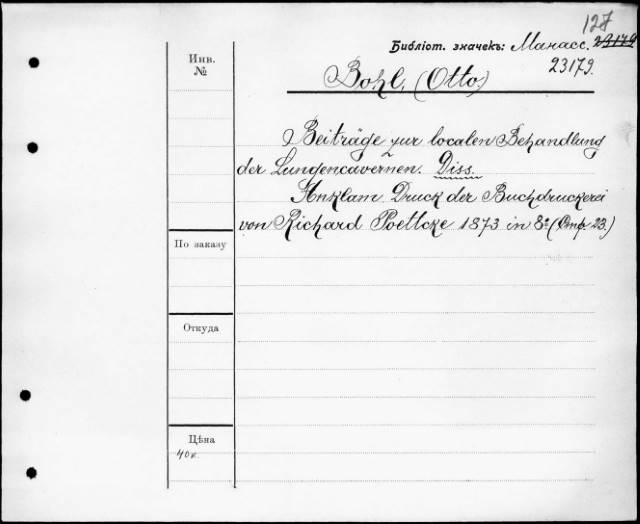 127
Библіот. значекъ: Манасс. 23179
23179.
Инв.
№
Bohl, (Otto)
Beiträge zur localen Behandlung
der Lungencavernen. Diss.
Anklam. Druck der Buchdruckerei
von Richard Poettcke 1873 in 8º (Стр. 23.)
По заказу
Откуда
Цѣна
40к.